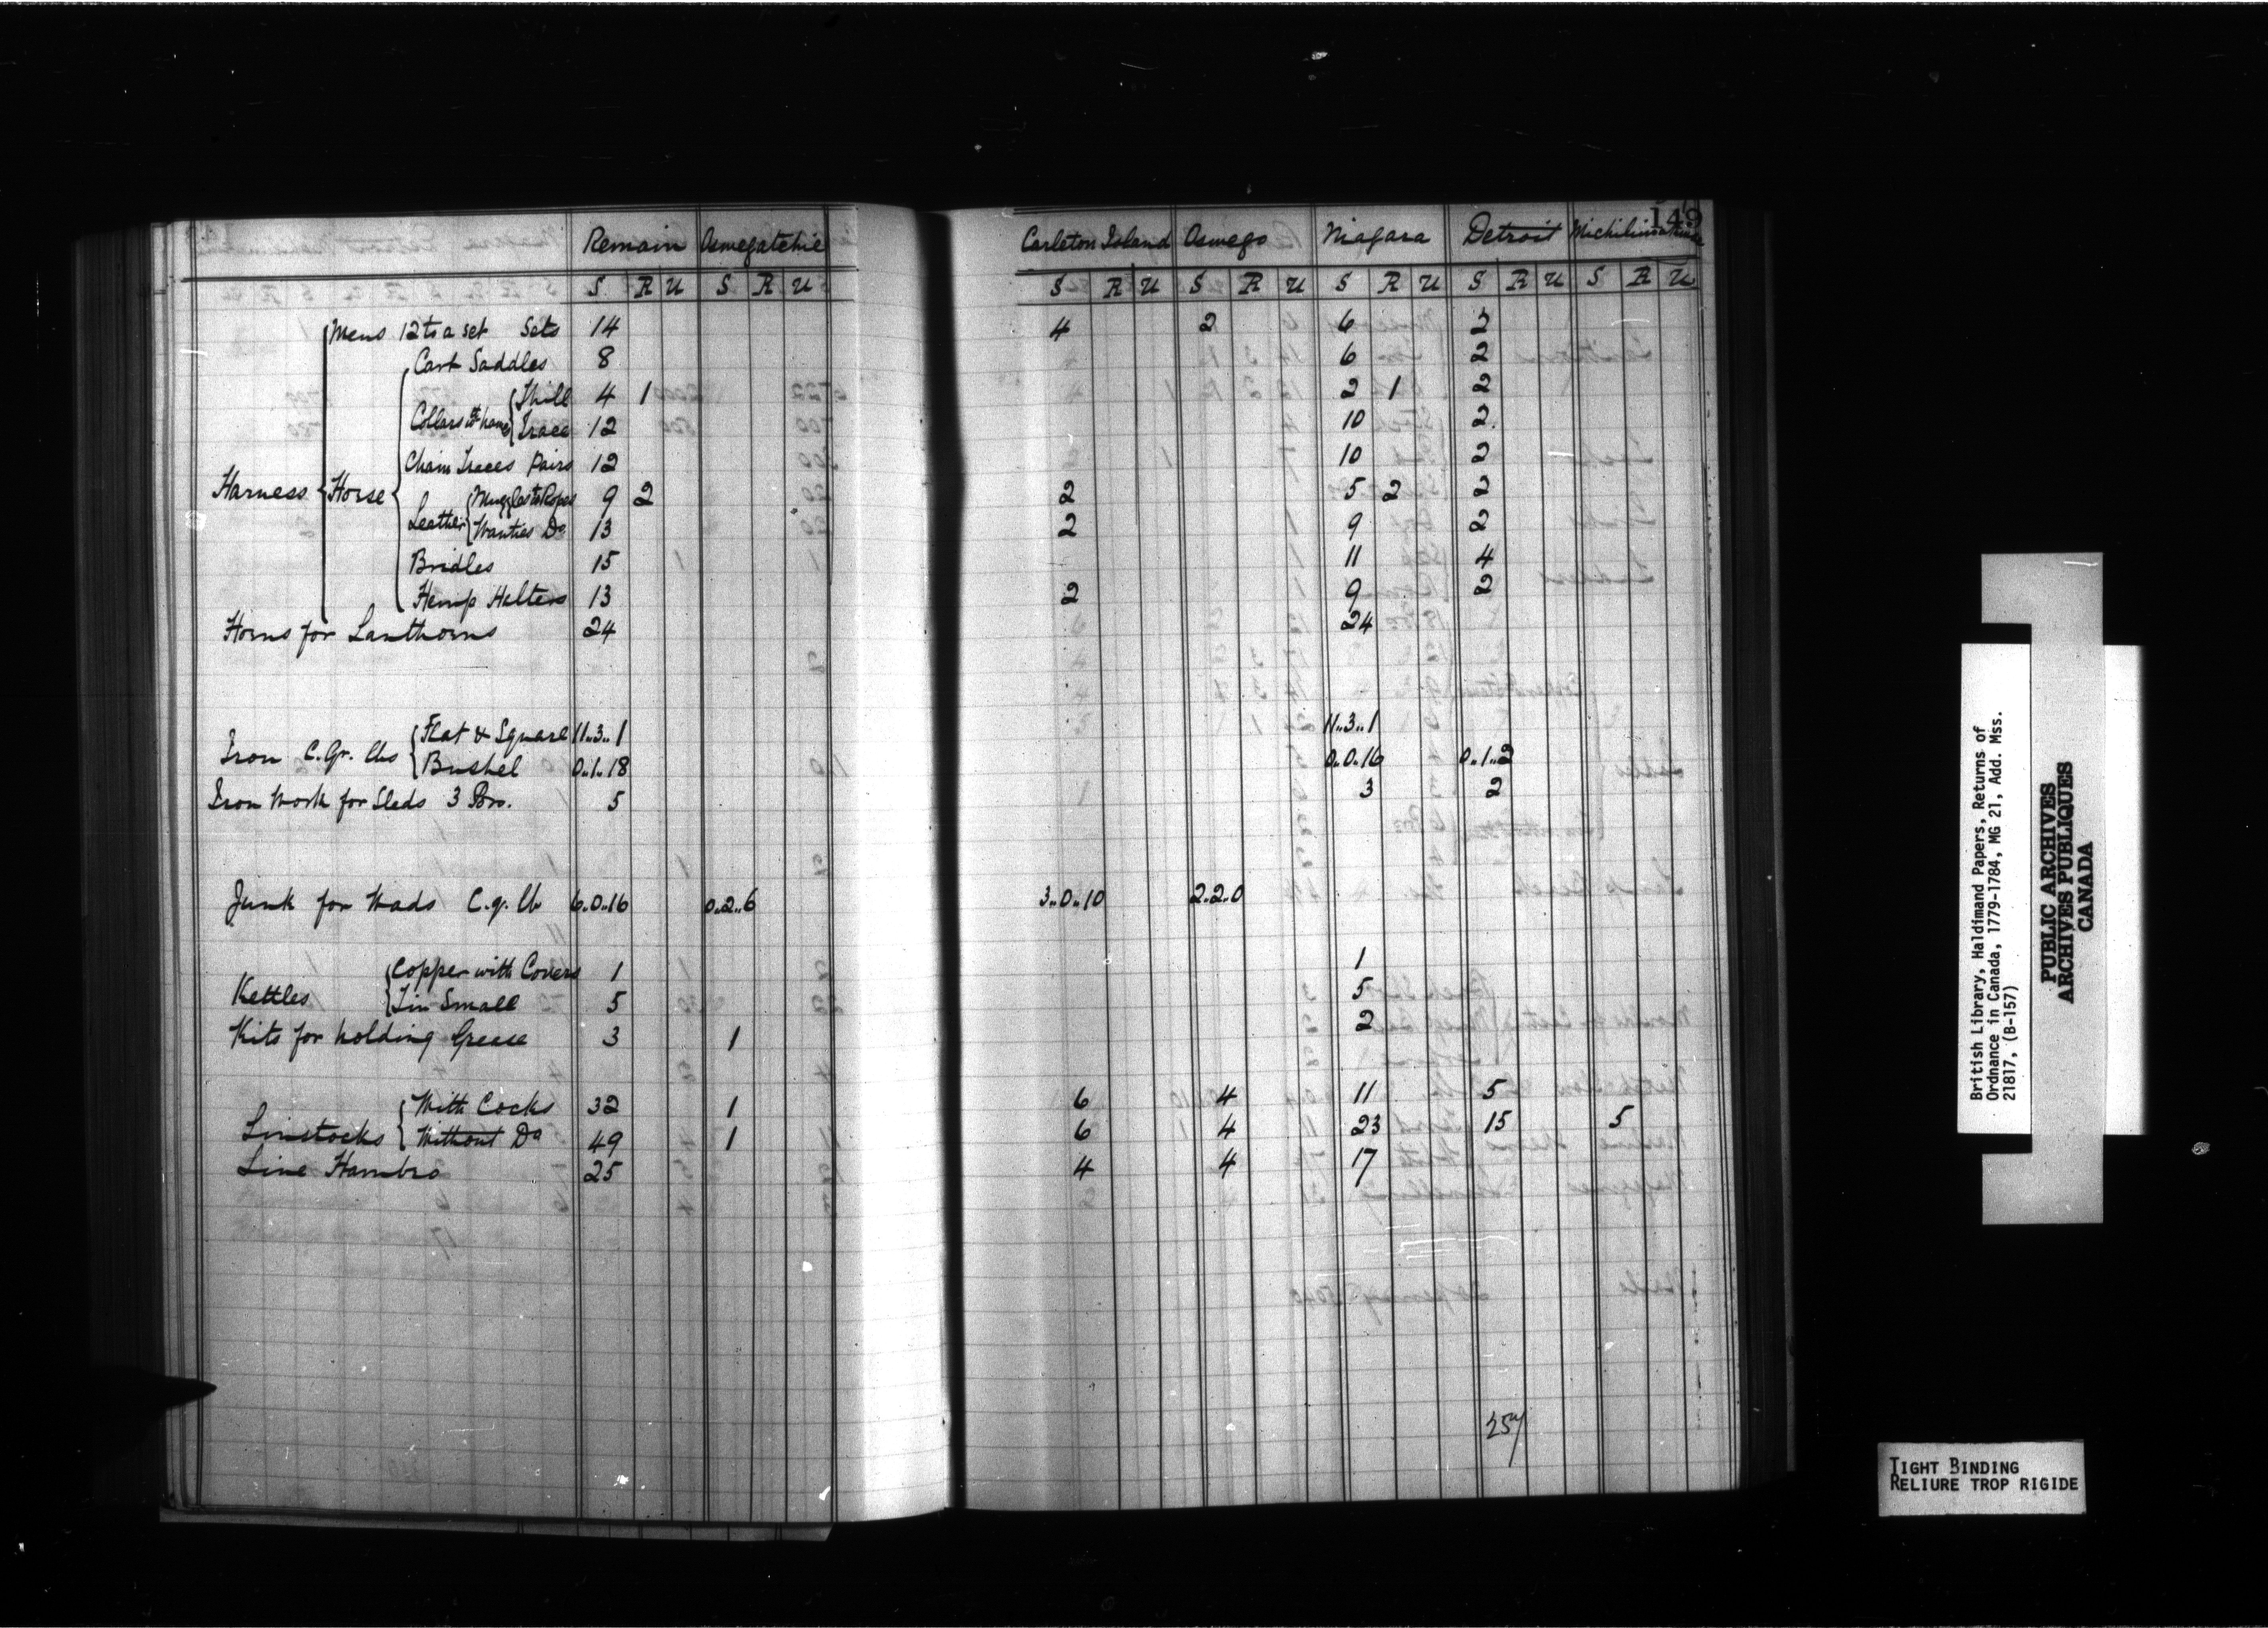 149
Remain Oswegatchie Carleton Island Oswego Niagara Detroit Michilimakinac
S R U S R U S R U S R U S R U S R U S R U
Mens 12 to a set Sets 14 4 2 6 2
Cart Saddles 8 6 2
Collars wth hames Thill 4 1 2 1 2
Trace 12 10 2
Chain Traces Pairs 12 10 2
Harness Horse Leather Muzzles to Ropes 9 2 2 5 2 2
Wanties Do 13 2 9 2
Bridles 15 11 4
Hemp Halters 13 2 9 2
Horns for Lanthorns 24 24
Iron C. Qr. lbs Flat & Square 11..3..1 11..3..1
Bushel 0..1..18 0..0..16 0..1..2
Iron Work for Sleds 3 Por. 5 3 2
Junk for Wads C. q. lb 6..0..16 0..2..6 3..0..10 2..2..0
Kettles Copper with Covers 1 1
Tin Small 5 5
Kits for holding Grease 3 1 2
Linstocks With Cocks 32 1 6 4 11 5
Without Do 49 1 6 4 23 15 5
Line Hambro 25 4 4 17
British Library, Haldimand Papers, Returns of
Ordnance in Canada, 1779-1784, MG 21, Add. Mss.
21817, (B-157)
PUBLIC ARCHIVES
ARCHIVES PUBLIQUES
CANADA
TIGHT BINDING
RELIURE TROP RIGIDE